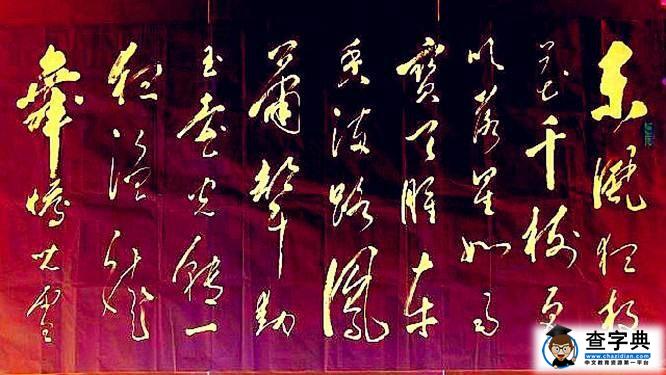 东風夜放
花千樹更
吹落星如雨
寶馬雕車
香滿路鳳
簫聲動
玉壺光轉一
夜漁龍
舞蛾兒雪
查字典
www.chazidian.com
中文教育资源第一平台